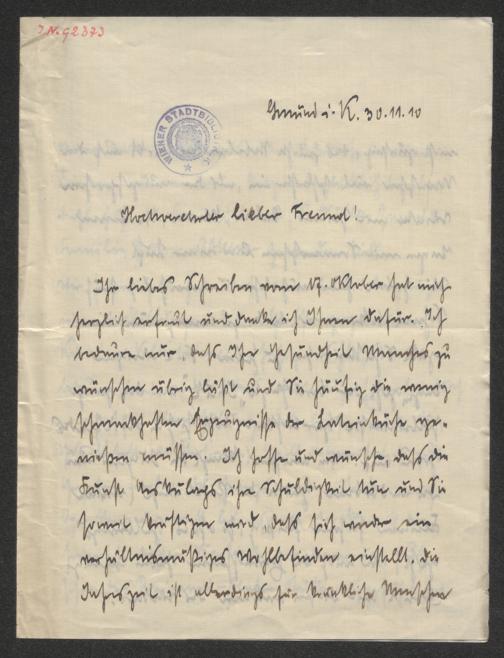 J.N. 92873
WIENER STADTBIBLIOTHEK
Gmünd i. K. 30.11.10
Hochverehrter lieber Freund!
Ihr liebes Schreiben vom 17. Oktober hat mich
herzlich erfreut und danke ich Ihnen dafür. Ich
bedaure nur, dass Ihre Gesundheit Manches zu
wünschen übrig läßt und Sie häufig die wenig
schmackhaften Erzeugnisse der Lateinküche ge-
nießen müssen. Ich hoffe und wünsche, dass die
Kunst Aeskulaps ihre Schuldigkeit tun und Sie
soweit kräftigen wird, dass sich wieder ein
verhältnismäßiges Wohlbefinden einstellt. Die
Jahreszeit ist allerdings für kränkliche Menschen